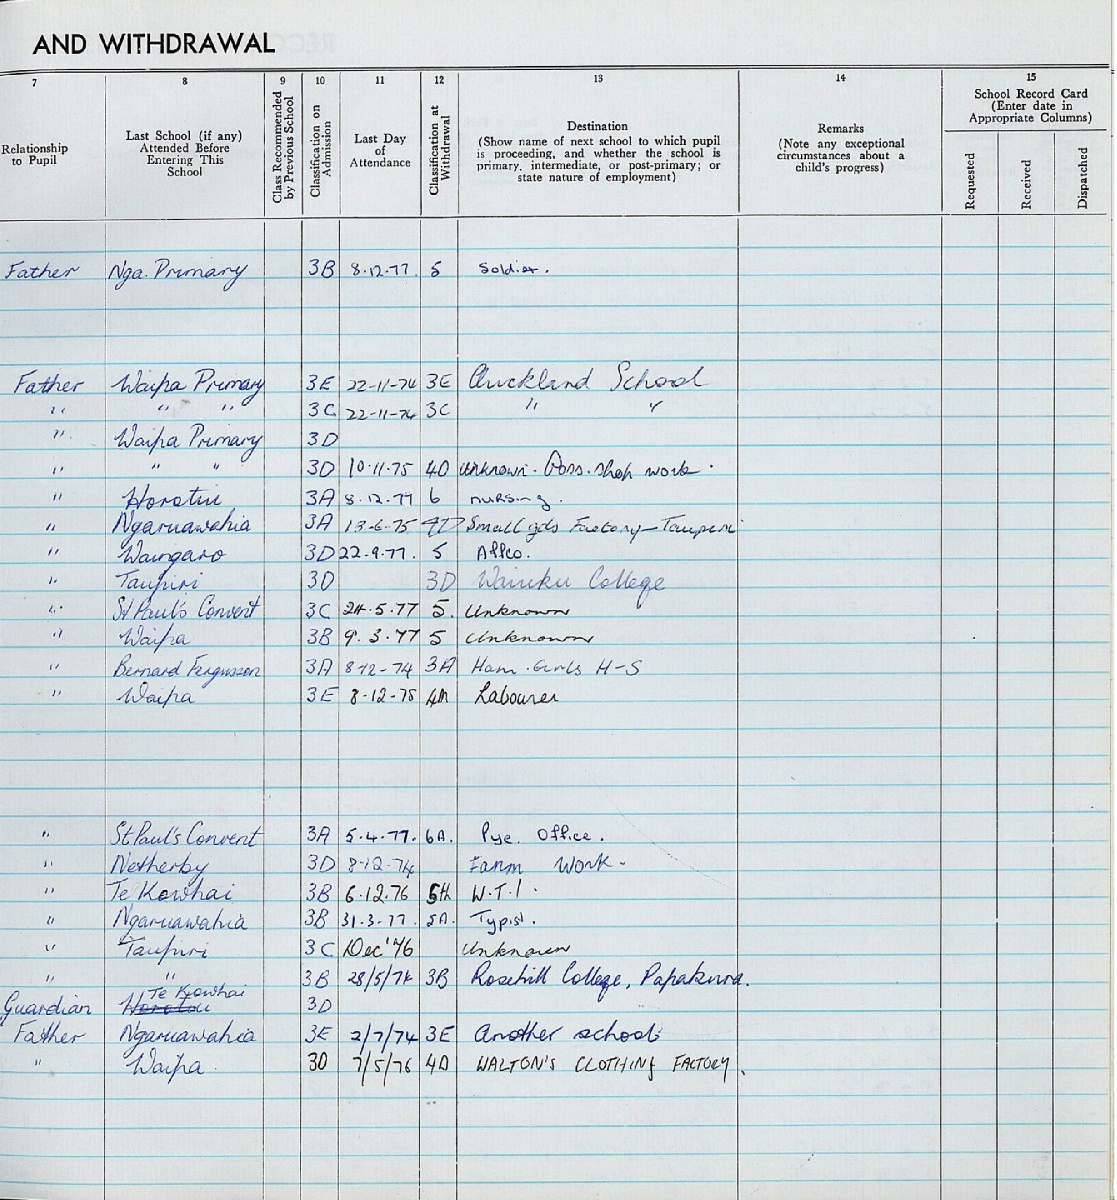 AND WITHDRAWAL
7 8 9 10 11 12 13 14 15
Relationship to Pupil
Last School (if any) Attended Before Entering This School
Class Recommended by Previous School
Classification on Admission
Last Day of Attendance
Classification at Withdrawal
Destination (Show name of next school to which pupil is proceeding, and whether the school is primary, intermediate, or post-primary; or state nature of employment)
Remarks (Note any exceptional circumstances about a child's progress)
School Record Card (Enter date in Appropriate Columns)
Requested Received Dispatched
Father Nga. Primary 3B 8.12.77. 5 Soldier.
Father Waipa Primary 3E 22-11-74 3E Auckland School
" " " 3C 22-11-74 3C " "
" Waipa Primary 3D
" " " 3D 10.11.75 4D Unknown - Poss. shop work.
" Horotiu 3A 8.12.77 6 nursing.
" Ngaruawahia 3A 13-6-75 Smallgds Factory - Taupiri
" Waingaro 3D 22.9.77. 5 Affco.
" Taupiri 3D 3D Waiuku College
" St Paul's Convent 3C 24.5.77 5. Unknown
" Waipa 3B 9.3.77 5 Unknown
" Bernard Fergusson 3A 8-12-74 3A Ham. Girls H-S
" Waipa 3E 8-12-75 4A Labourer
" St Paul's Convent 3A 5.4.77. 6A. Pye. Office.
" Netherby 3D 8-12-74 Farm Work.
" Te Kowhai 3B 6.12.76 5H W.T.I.
" Ngaruawahia 3B 31.3.77. 5A. Typist.
" Taupiri 3C Dec '76 Unknown
" " 3B 28/5/74 3B Rosehill College, Papakura.
Guardian Horotiu Te Kowhai 3D
Father Ngaruawahia 3E 2/7/74 3E Another school
" Waipa 3D 7/5/76 4D WALTON'S CLOTHING FACTORY.